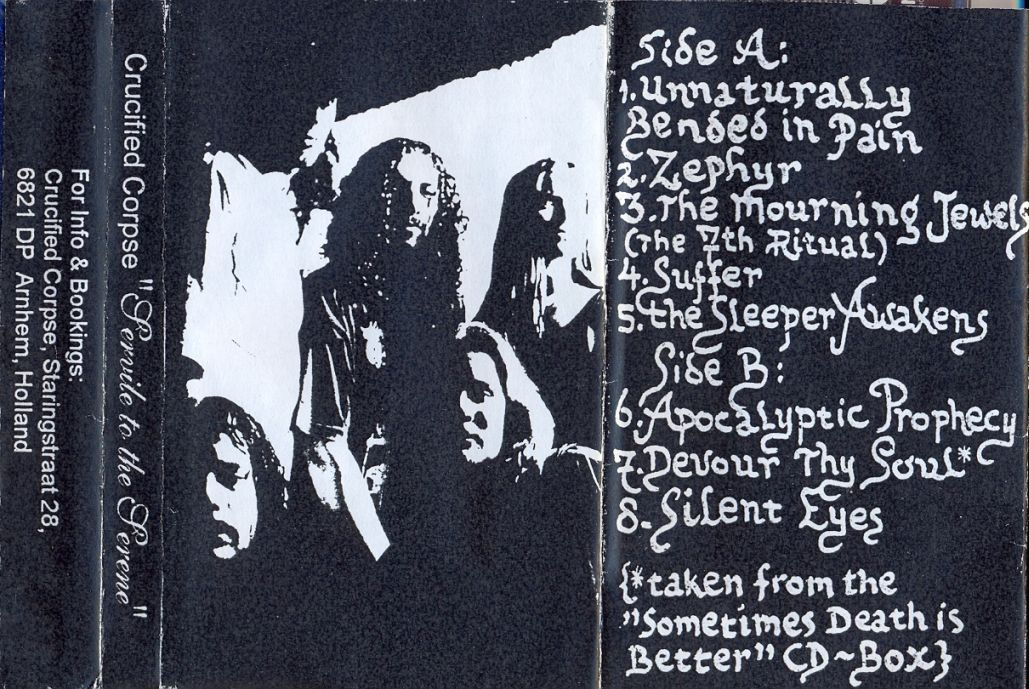 For Info & Bookings:
Crucified Corpse, Staringstraat 28,
6821 DP Arnhem, Holland
Crucified Corpse "Servile to the Serene"
Side A:
1. Unnaturally
Bended in Pain
2. Zephyr
3. The Mourning Jewels
(The 7th Ritual)
4. Suffer
5. the Sleeper Awakens
Side B:
6. Apocalyptic Prophecy
7. Devour Thy Soul*
8. Silent Eyes
{*taken from the
"Sometimes Death is
Better" CD~Box}